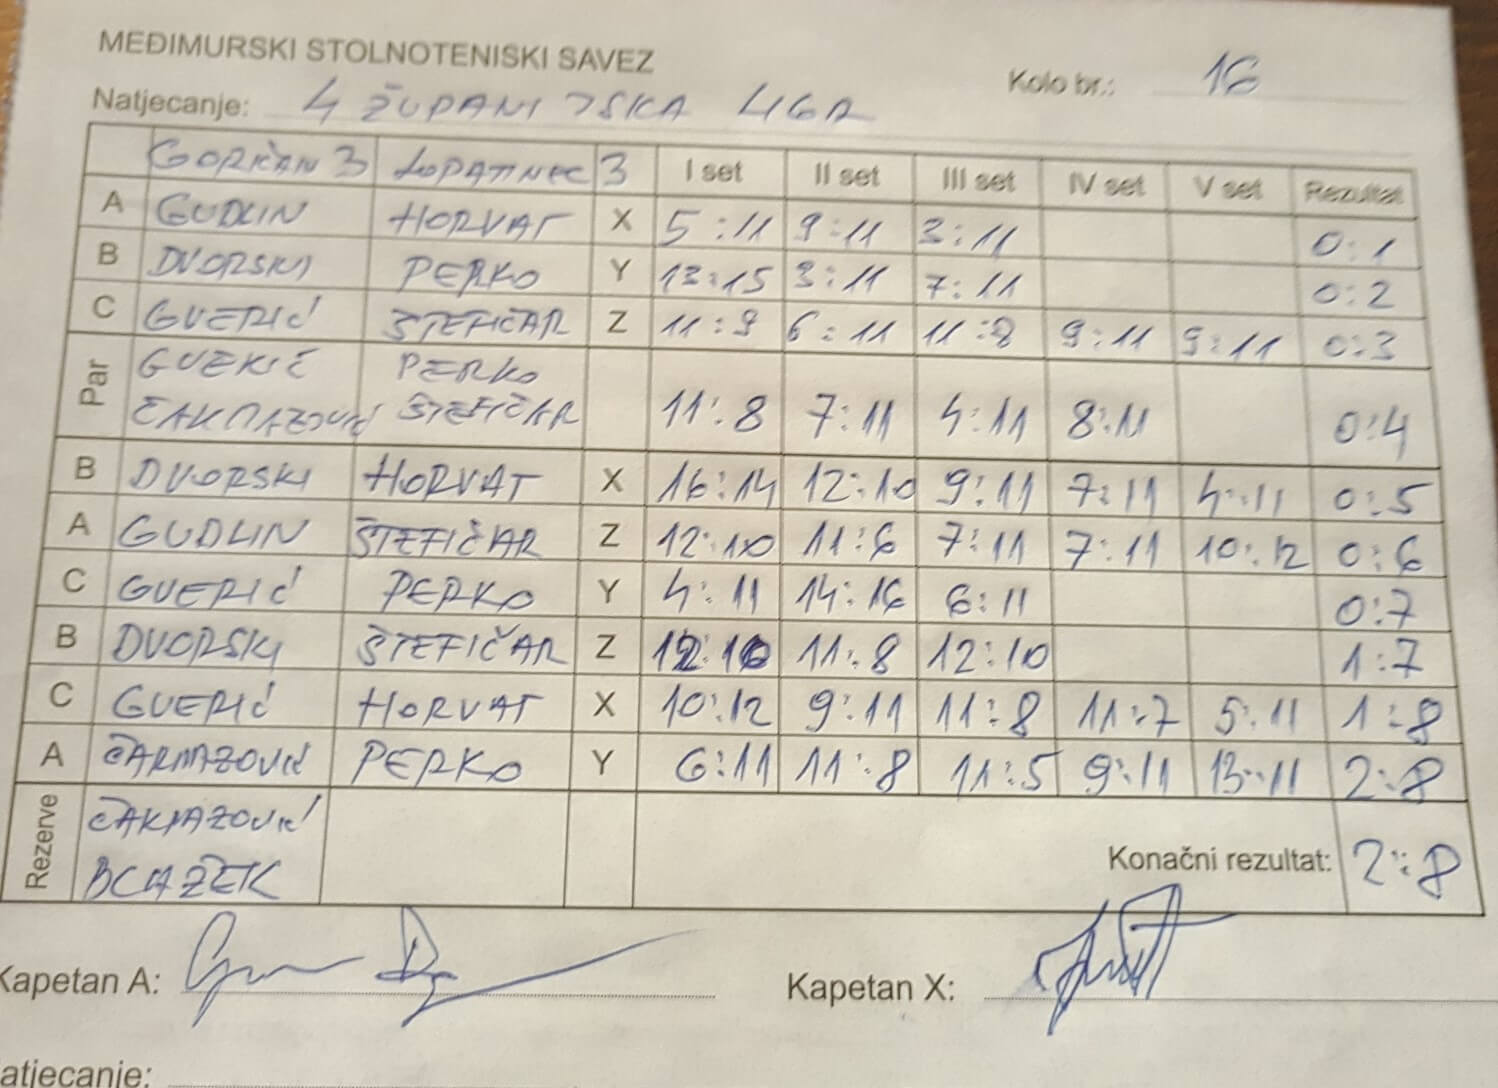 MEĐIMURSKI STOLNOTENISKI SAVEZ
Kolo br.: 16
Natjecanje: 4 ŽUPANIJSKA LIGA
GORIČAN 3 LOPATINEC 3 I set II set III set IV set V set Rezultat
A GUDLIN HORVAT X 5:11 9:11 3:11 0:1
B DVORSKI PERKO Y 13:15 3:11 7:11 0:2
C GVERIĆ ŠTEFIČAR Z 11:9 6:11 11:8 9:11 9:11 0:3
Par GVERIĆ PERKO
ČAKMAZOVIĆ ŠTEFIČAR 11:8 7:11 4:11 8:11 0:4
B DVORSKI HORVAT X 16:14 12:10 9:11 7:11 4:11 0:5
A GUDLIN ŠTEFIČAR Z 12:10 11:6 7:11 7:11 10:12 0:6
C GVERIĆ PERKO Y 4:11 14:16 6:11 0:7
B DVORSKI ŠTEFIČAR Z 12:10 11:8 12:10 1:7
C GVERIĆ HORVAT X 10:12 9:11 11:8 11:7 5:11 1:8
A ČAKMAZOVIĆ PERKO Y 6:11 11:8 11:5 9:11 13:11 2:8
Rezerve ČAKMAZOVIĆ
BLAŽEK
Konačni rezultat: 2:8
Kapetan A:
Kapetan X:
atjecanje: